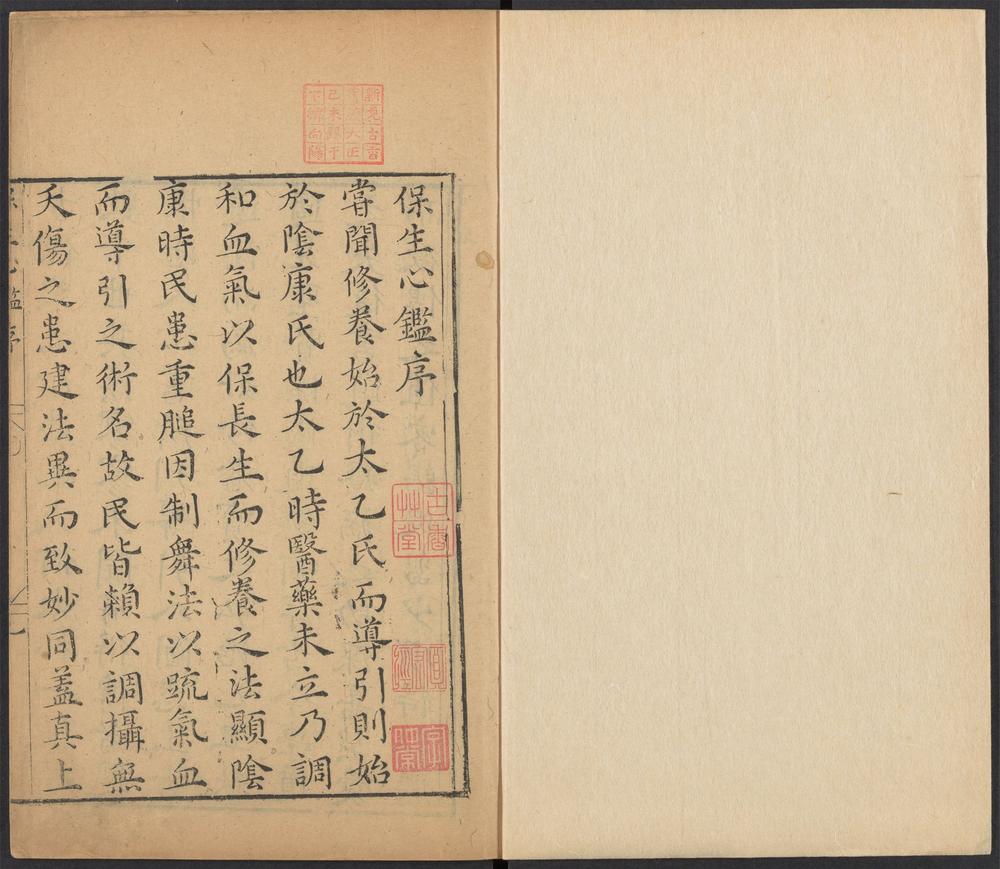 保生心鑑序
嘗聞修養始於太乙氏而導引則始
於陰康氏也太乙時醫藥未立乃調
和血氣以保長生而修養之法顯陰
康時民患重膇因制舞法以疏氣血
而導引之術名故民皆賴以調攝無
夭傷之患建法異而致妙同蓋真上
心鑑序
古香
艸堂